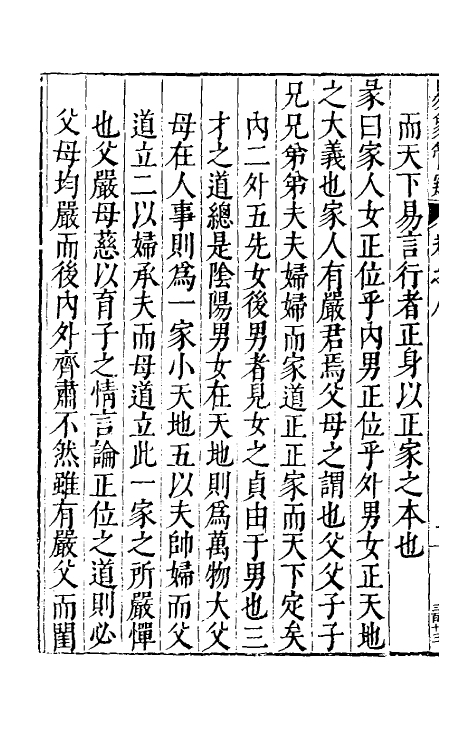 而天下易言行者正身以正家之本也
彖曰家人女正位乎內男正位乎外男女正天地
之大義也家人有嚴君焉父母之謂也父父子子
兄兄弟弟夫夫婦婦而家道正正家而天下定矣
內二外五先女後男者見女之貞由于男也三
才之道總是陰陽男女在天地則爲萬物大父
母在人事則爲一家小天地五以夫帥婦而父
道立二以婦承夫而母道立此一家之所嚴憚
也父嚴母慈以育子之情言論正位之道則必
父母均嚴而後內外齊肅不然雖有嚴父而閨